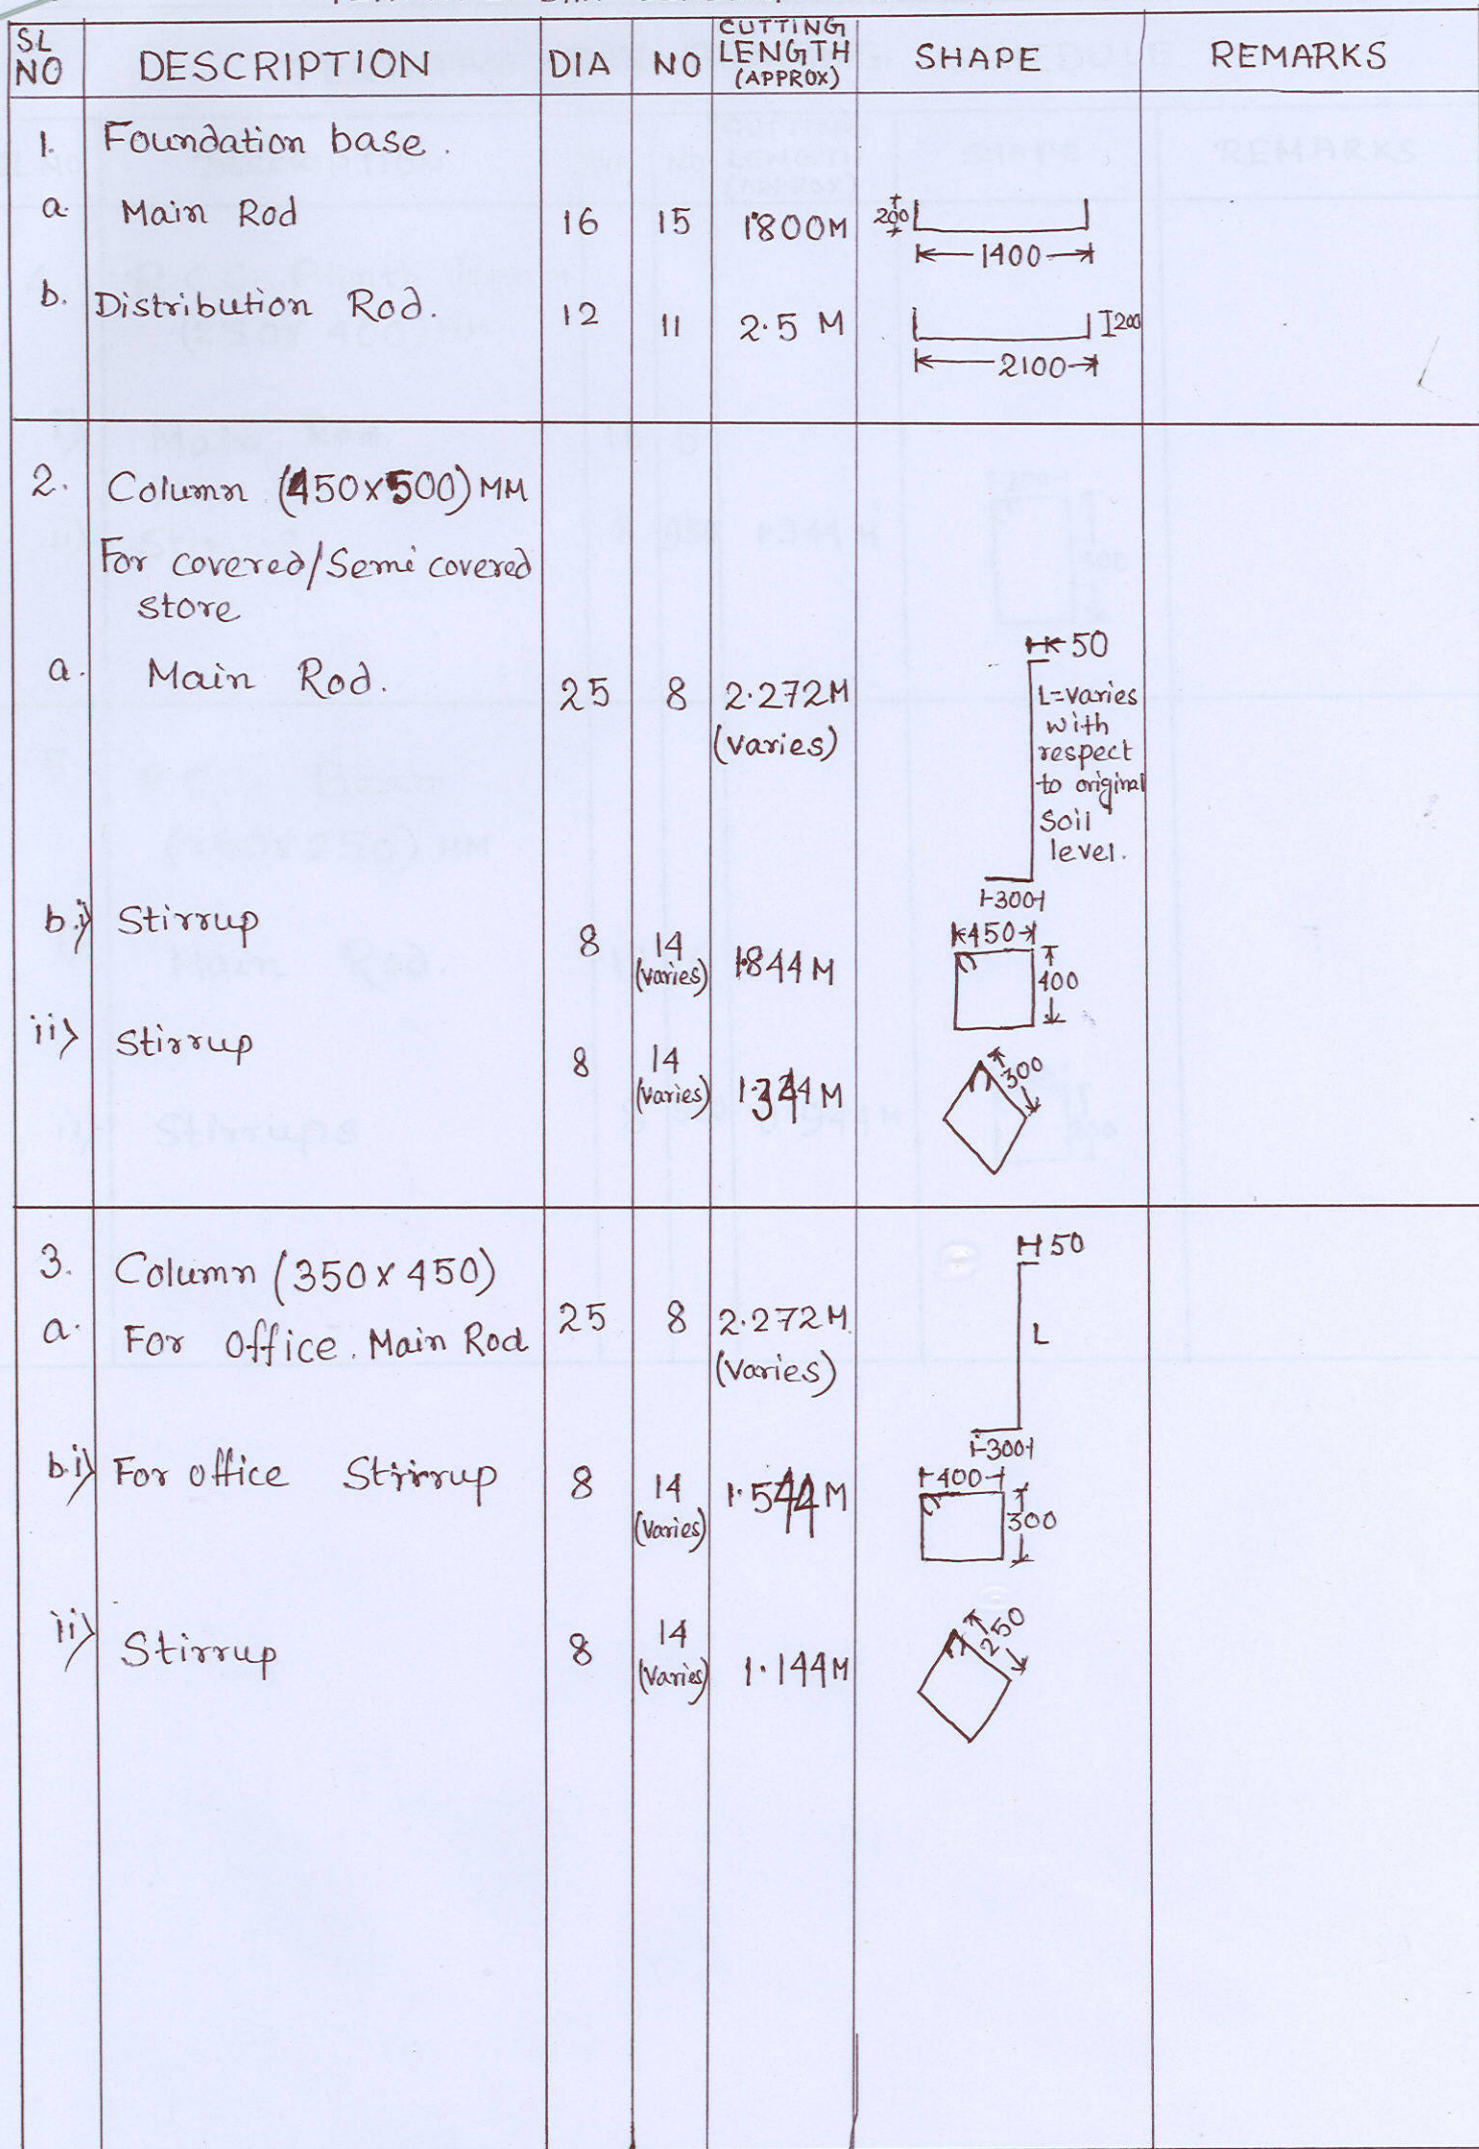 SL NO DESCRIPTION DIA NO CUTTING LENGTH (APPROX) SHAPE REMARKS
1. Foundation base.
a. Main Rod 16 15 1.800M 200 1400
b. Distribution Rod. 12 11 2.5 M 200 2100
2. Column (450x500) MM
For covered/Semi covered
store
a. Main Rod. 25 8 2.272M (varies) 50
L=varies
with
respect
to original
Soil
level.
300
b.i) Stirrup 8 14 (varies) 1.844M 450 400
ii) Stirrup 8 14 (varies) 1.344M 300
3. Column (350x450)
a. For office. Main Rod 25 8 2.272M (varies) 50 L 300
b.i) For office Stirrup 8 14 (varies) 1.544M 400 300
ii) Stirrup 8 14 (varies) 1.144M 250